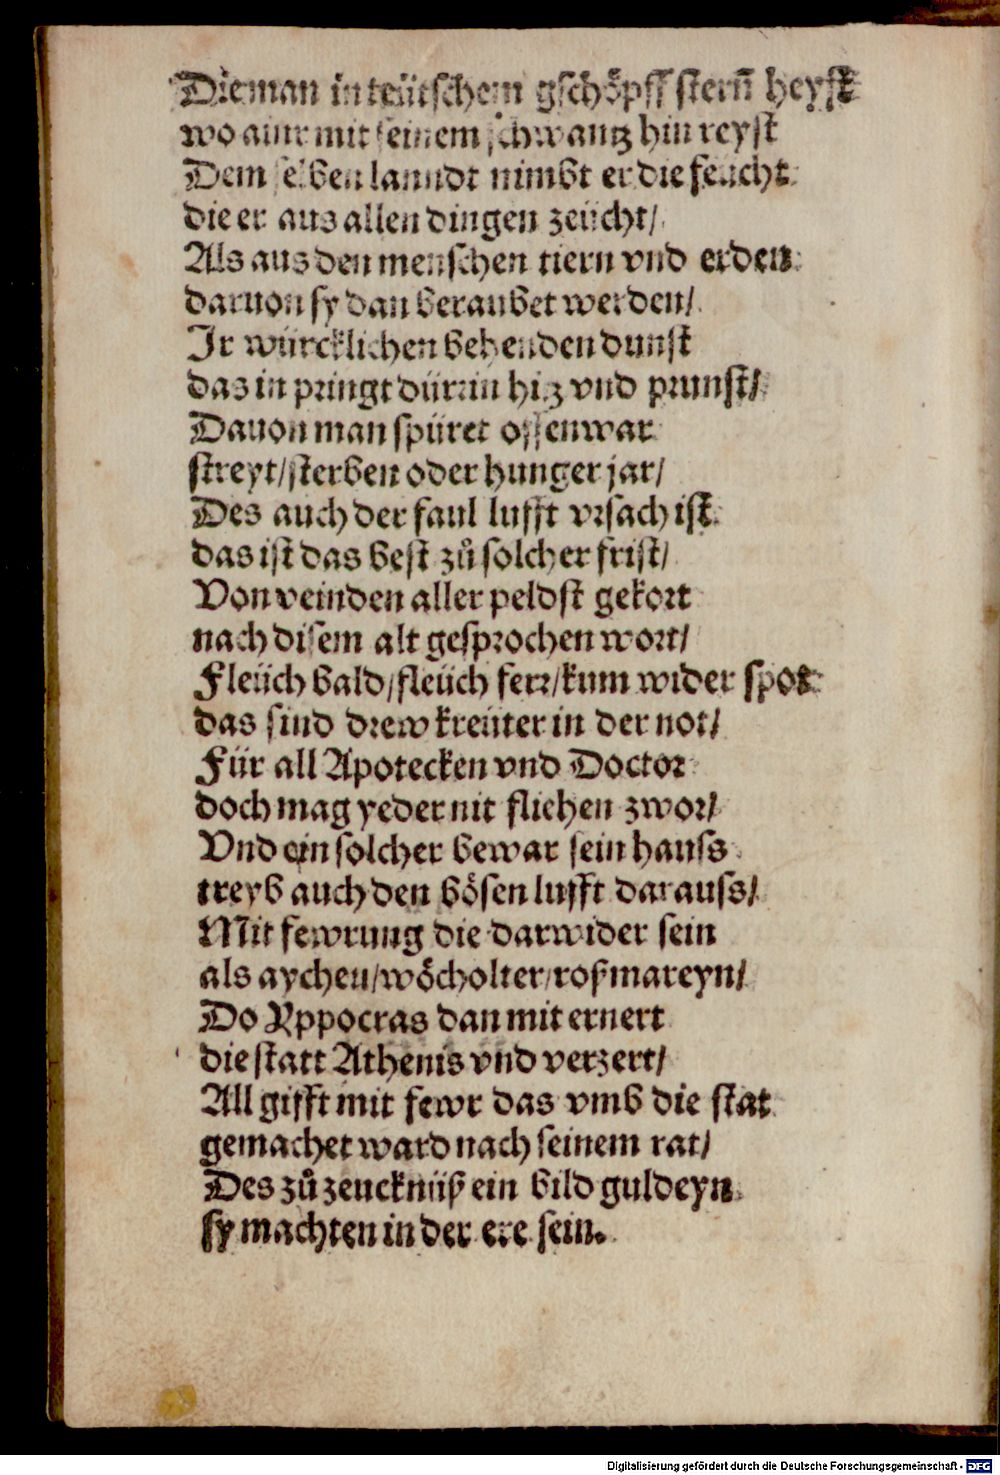 Die man in teütschem gschöpff stern̄ heyst
wo ainr mit seinem schwantz hin reyst
Dem selben lanndt nimbt er die feücht
die er aus allen dingen zeücht/
Als aus den menschen tiern vnd erden
daruon sy dan beraubet werden/
Ir würcklichen behenden dunst
das in pringt dürrin hiz vnd prunst/
Dauon man spüret offenwar
streyt/sterben oder hunger jar/
Des auch der faul lufft vrsach ist
das ist das best zů solcher frist/
Von veinden aller peldst gekort
nach disem alt gesprochen wort/
Fleüch bald/fleüch ferr/kum wider spot
das sind drew kreüter in der not/
Für all Apotecken vnd Doctor
doch mag yeder nit fliehen zwor/
Vnd ein solcher bewar sein hauss
treyb auch den bösen lufft darauss/
Mit fewrung die darwider sein
als aychen/wöcholter/roßmareyn/
Do Yppocras dan mit ernert
die statt Athenis vnd verzert/
All gifft mit fewr das vmb die stat
gemachet ward nach seinem rat/
Des zů zeucknüß ein bild guldeyn
sy machten in der ere sein.
Digitalisierung gefördert durch die Deutsche Forschungsgemeinschaft - DFG